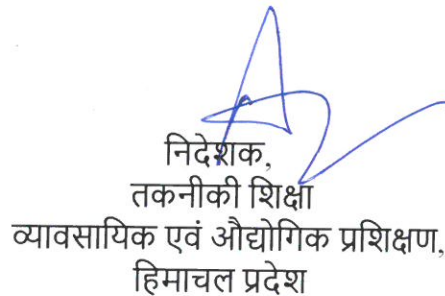 निदेशक,
तकनीकी शिक्षा
व्यावसायिक एवं औद्योगिक प्रशिक्षण,
हिमाचल प्रदेश